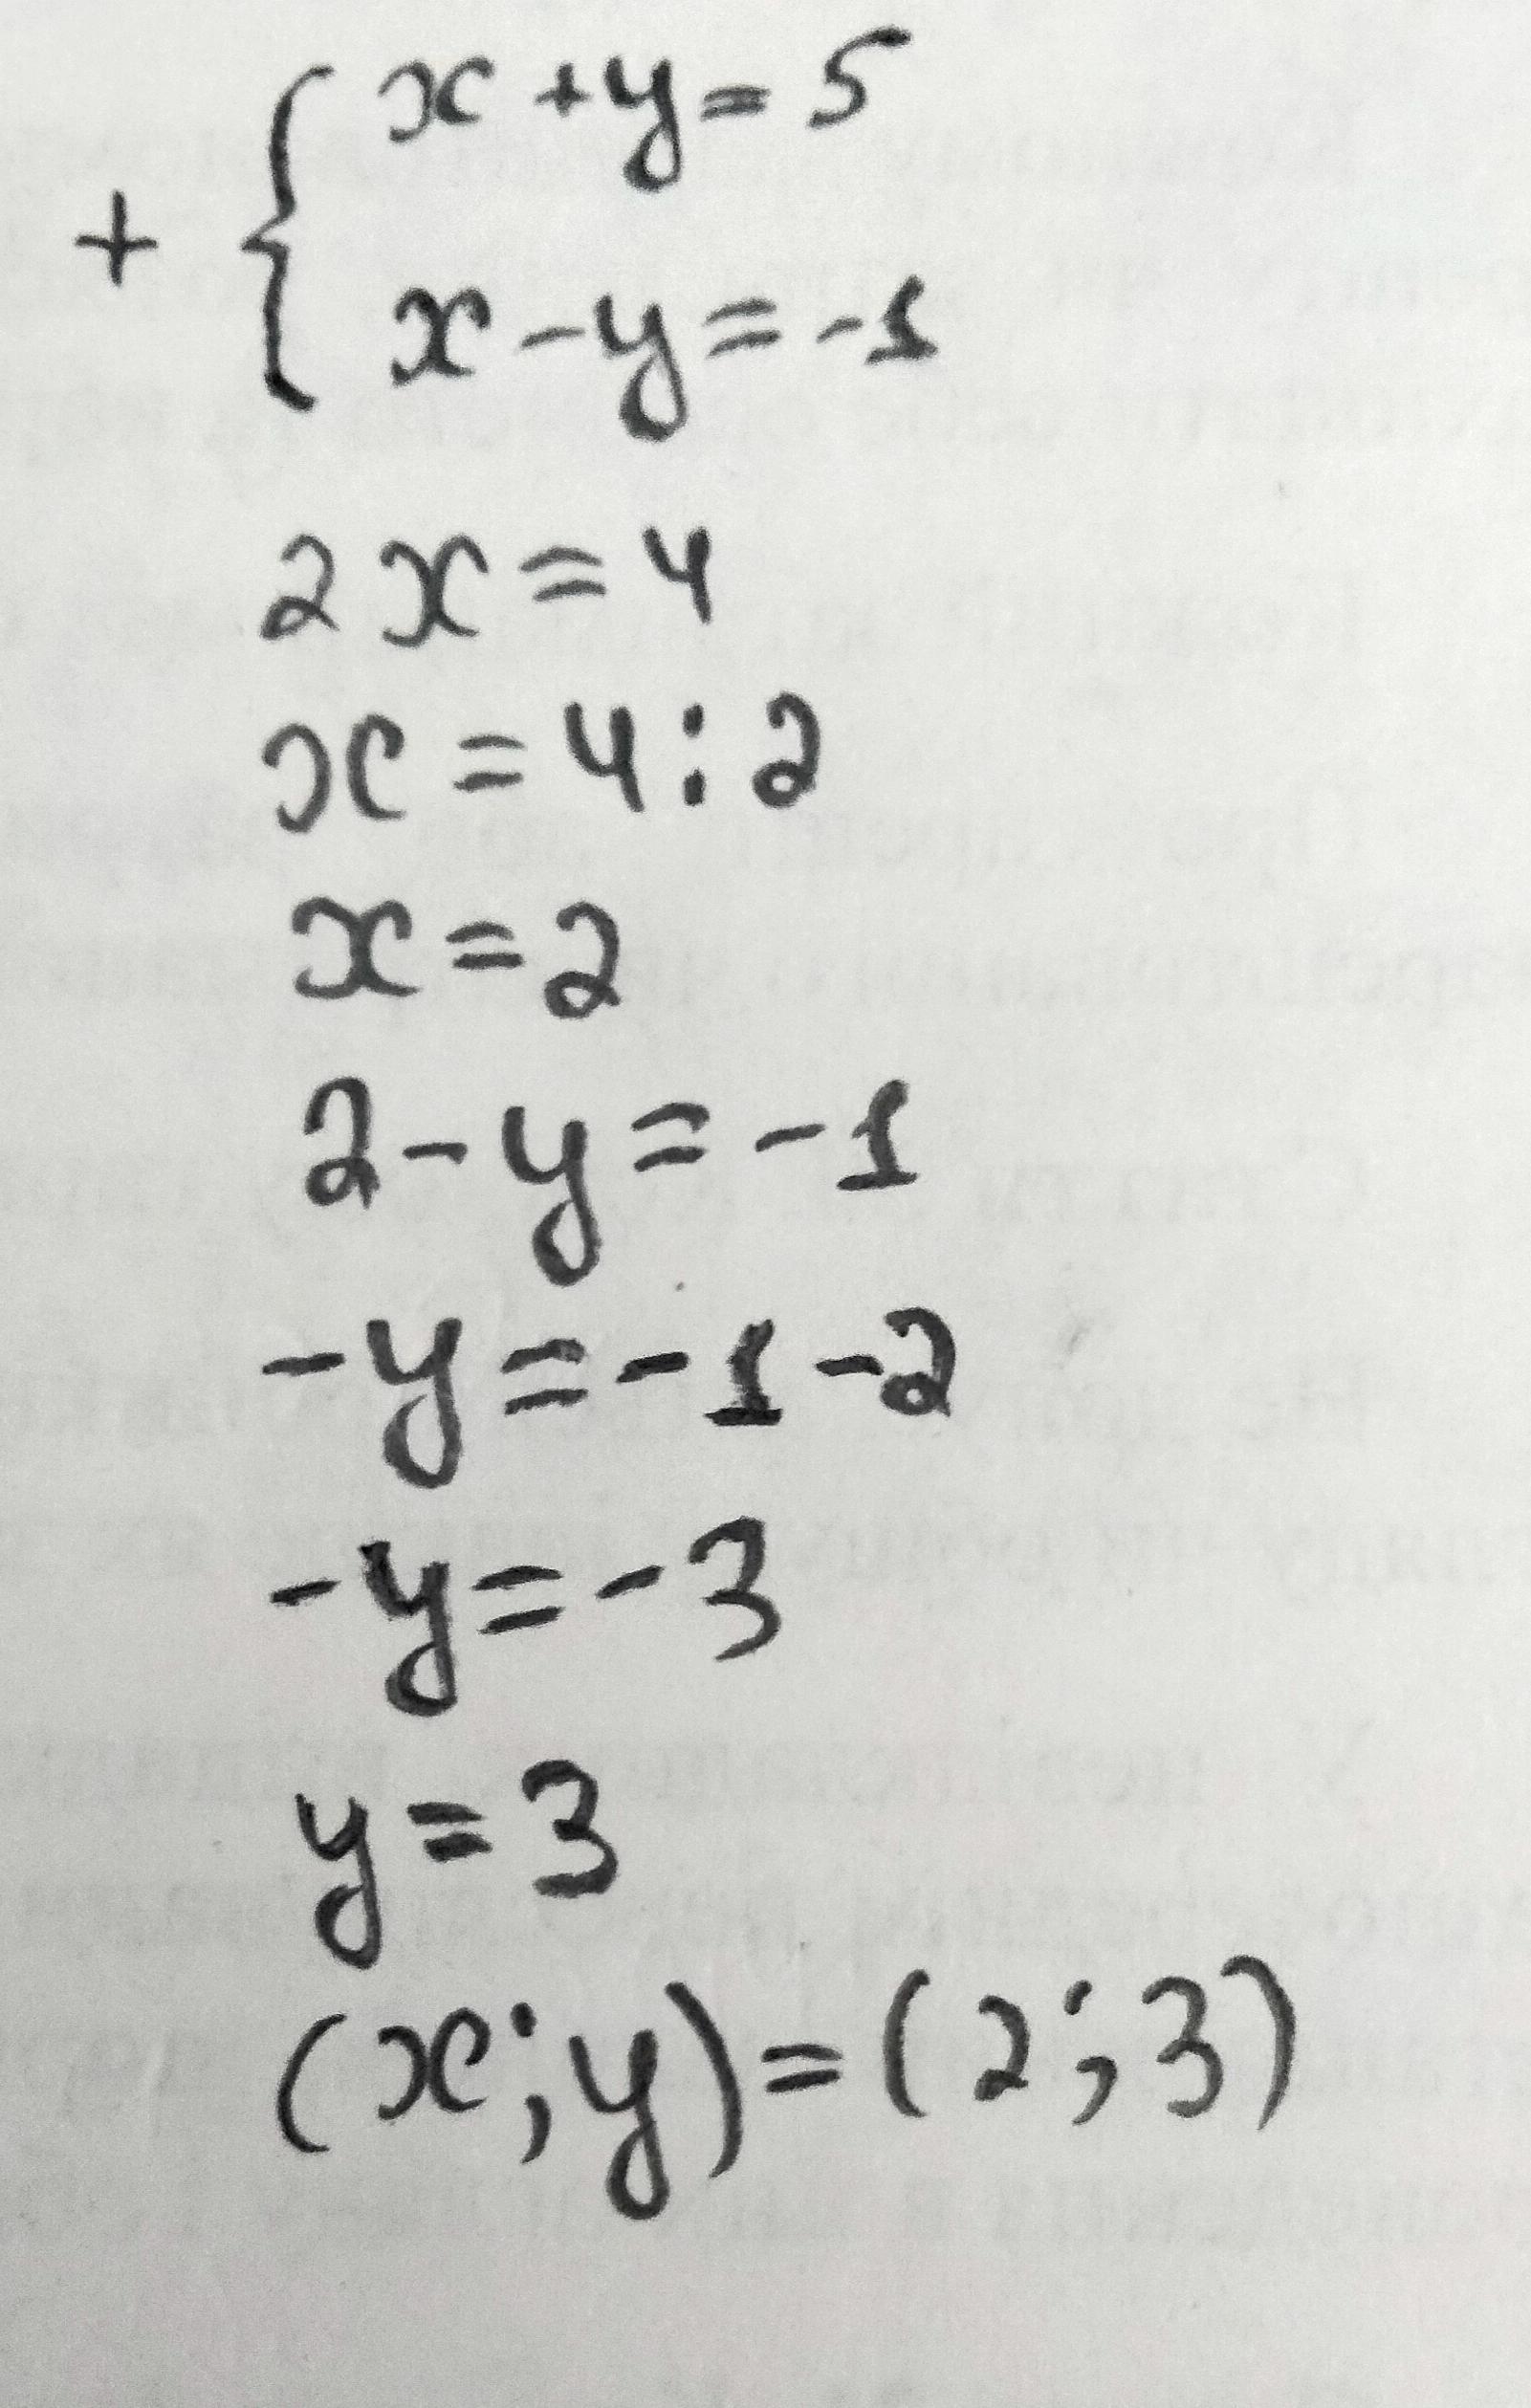 + { x + y = 5
x - y = -1
2x = 4
x = 4 : 2
x = 2
2 - y = -1
-y = -1 - 2
-y = -3
y = 3
(x; y) = (2; 3)